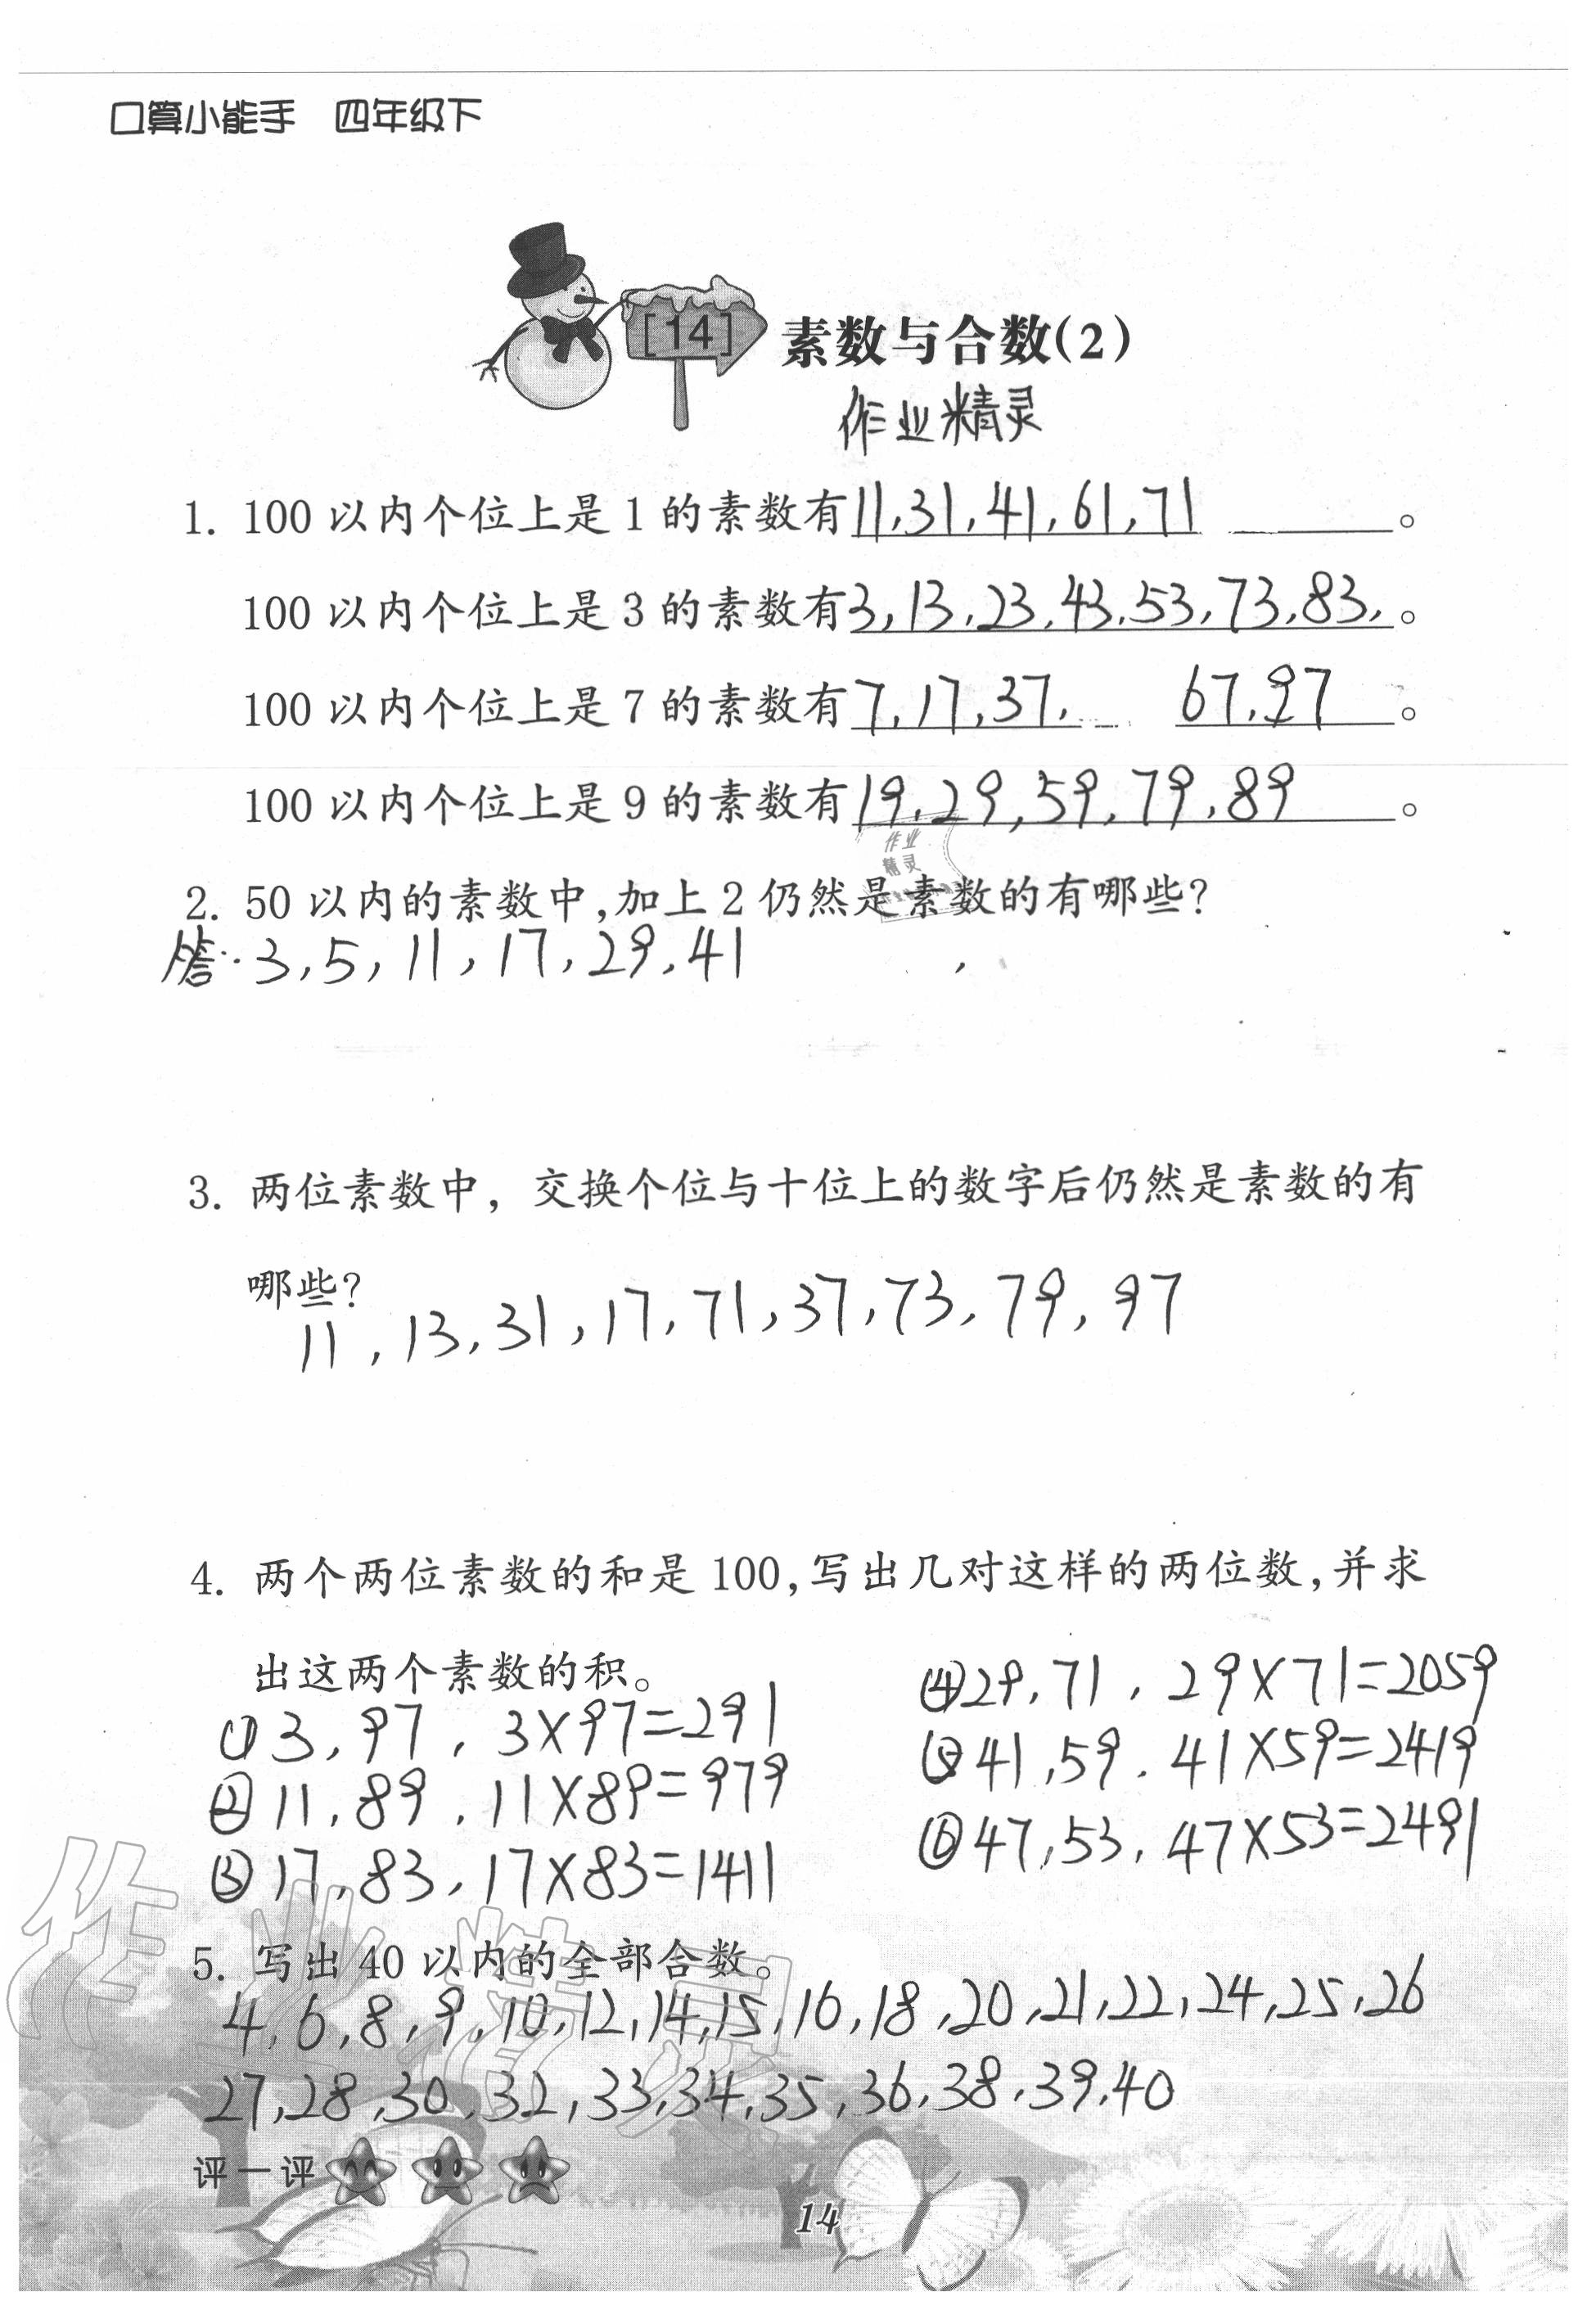 口算小能手 四年级下
[14] 素数与合数(2)
作业精灵
1. 100以内个位上是1的素数有11,31,41,61,71。
100以内个位上是3的素数有3,13,23,43,53,73,83,。
100以内个位上是7的素数有7,17,37, 67,97。
100以内个位上是9的素数有19,29,59,79,89。
作业
精灵
2. 50以内的素数中,加上2仍然是素数的有哪些?
答:3,5,11,17,29,41
3. 两位素数中，交换个位与十位上的数字后仍然是素数的有
哪些?
11,13,31,17,71,37,73,79,97
4. 两个两位素数的和是100,写出几对这样的两位数,并求
出这两个素数的积。
①3,97,3×97=291
②11,89,11×89=979
③17,83,17×83=1411
④29,71,29×71=2059
⑤41,59.41×59=2419
⑥47,53,47×53=2491
5. 写出40以内的全部合数。
4,6,8,9,10,12,14,15,16,18,20,21,22,24,25,26
27,28,30,32,33,34,35,36,38,39,40
作业精灵
评一评
14